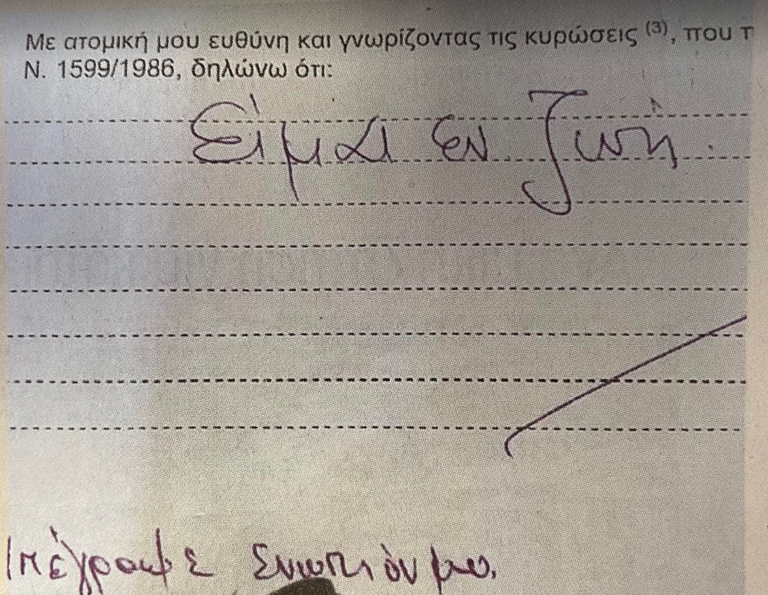 Με ατομική μου ευθύνη και γνωρίζοντας τις κυρώσεις (3), που
Ν. 1599/1986, δηλώνω ότι:
Είμαι εν ζωή.
πέγραψε ενωπιόν μου.